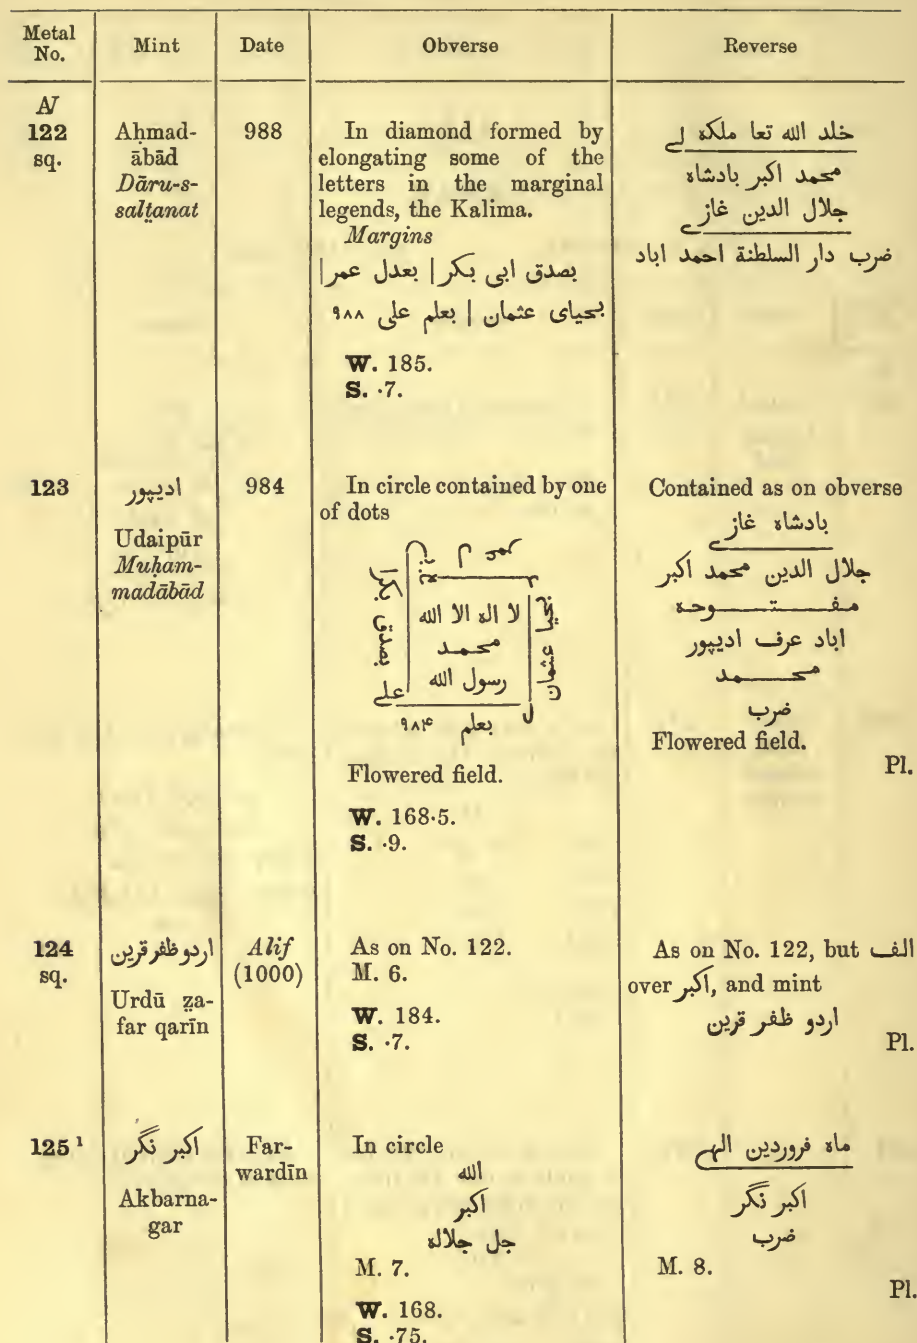 Metal No. Mint Date Obverse Reverse
A/
122
sq.
Aḥmad-
ābād
Dāru-s-
salṭanat
988
In diamond formed by
elongating some of the
letters in the marginal
legends, the Kalima.
Margins
بصدق ابی بکر | بعدل عمر |
بحیای عثمان | بعلم علی ۹۸۸
W. 185.
S. ·7.
خلد الله تعا ملكه لے
محمد اکبر بادشاه
جلال الدین غازے
ضرب دار السلطنة احمد اباد
123
ادیپور
Udaipūr
Muḥam-
madābād
984
In circle contained by one
of dots
لا اله الا الله
محمد
رسول الله
بصدق بکرا
بحیا عثمان
علے
بعلم ۹۸۴
Flowered field.
W. 168·5.
S. ·9.
Contained as on obverse
بادشاه غازے
جلال الدین محمد اکبر
مفتوحه
اباد عرف ادیپور
محمد
ضرب
Flowered field.
Pl.
124
sq.
اردو ظفر قرین
Urdū z̤a-
far qarīn
Alif
(1000)
As on No. 122.
M. 6.
W. 184.
S. ·7.
As on No. 122, but الف
over اکبر, and mint
اردو ظفر قرین
Pl.
125 ¹
اکبر نگر
Akbarna-
gar
Far-
wardīn
In circle
الله
اکبر
جل جلاله
M. 7.
W. 168.
S. ·75.
ماه فروردین الهے
اکبر نگر
ضرب
M. 8.
Pl.